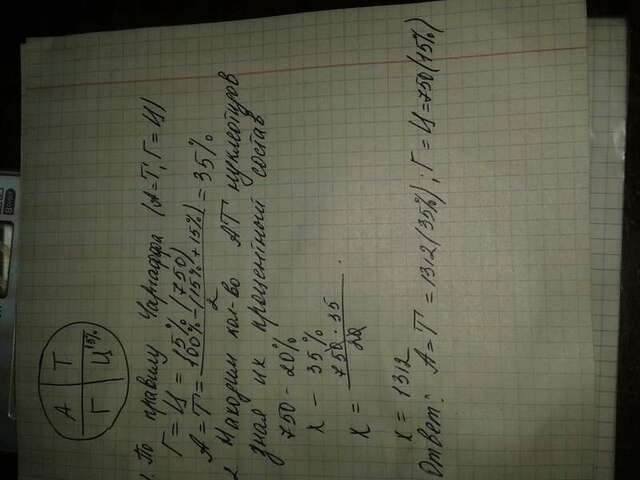 А Т
Г Ц 15%
1. По правилу Чаргаффа (А=Т; Г=Ц)
Г = Ц = 15% (750)
А = Т = 100% - (15% + 15%) / 2 = 35%
2. Находим кол-во АТ нуклеотидов
зная их процентный состав
750 - 20%
х - 35%
х = 750 · 35 / 20
х = 1312
Ответ: А = Т = 1312 (35%); Г = Ц = 750 (15%)